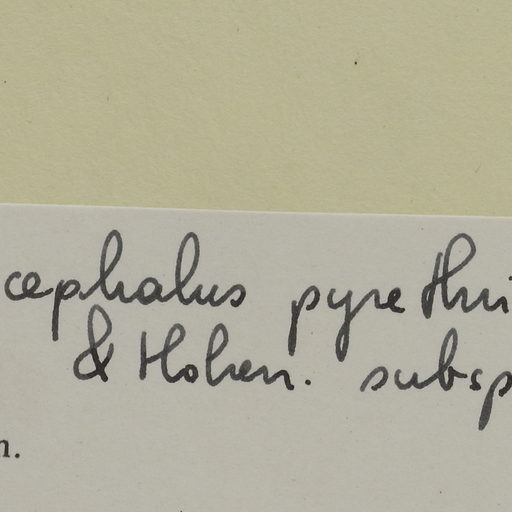 cephalus pyrethri
& Hohen. subsp
n.